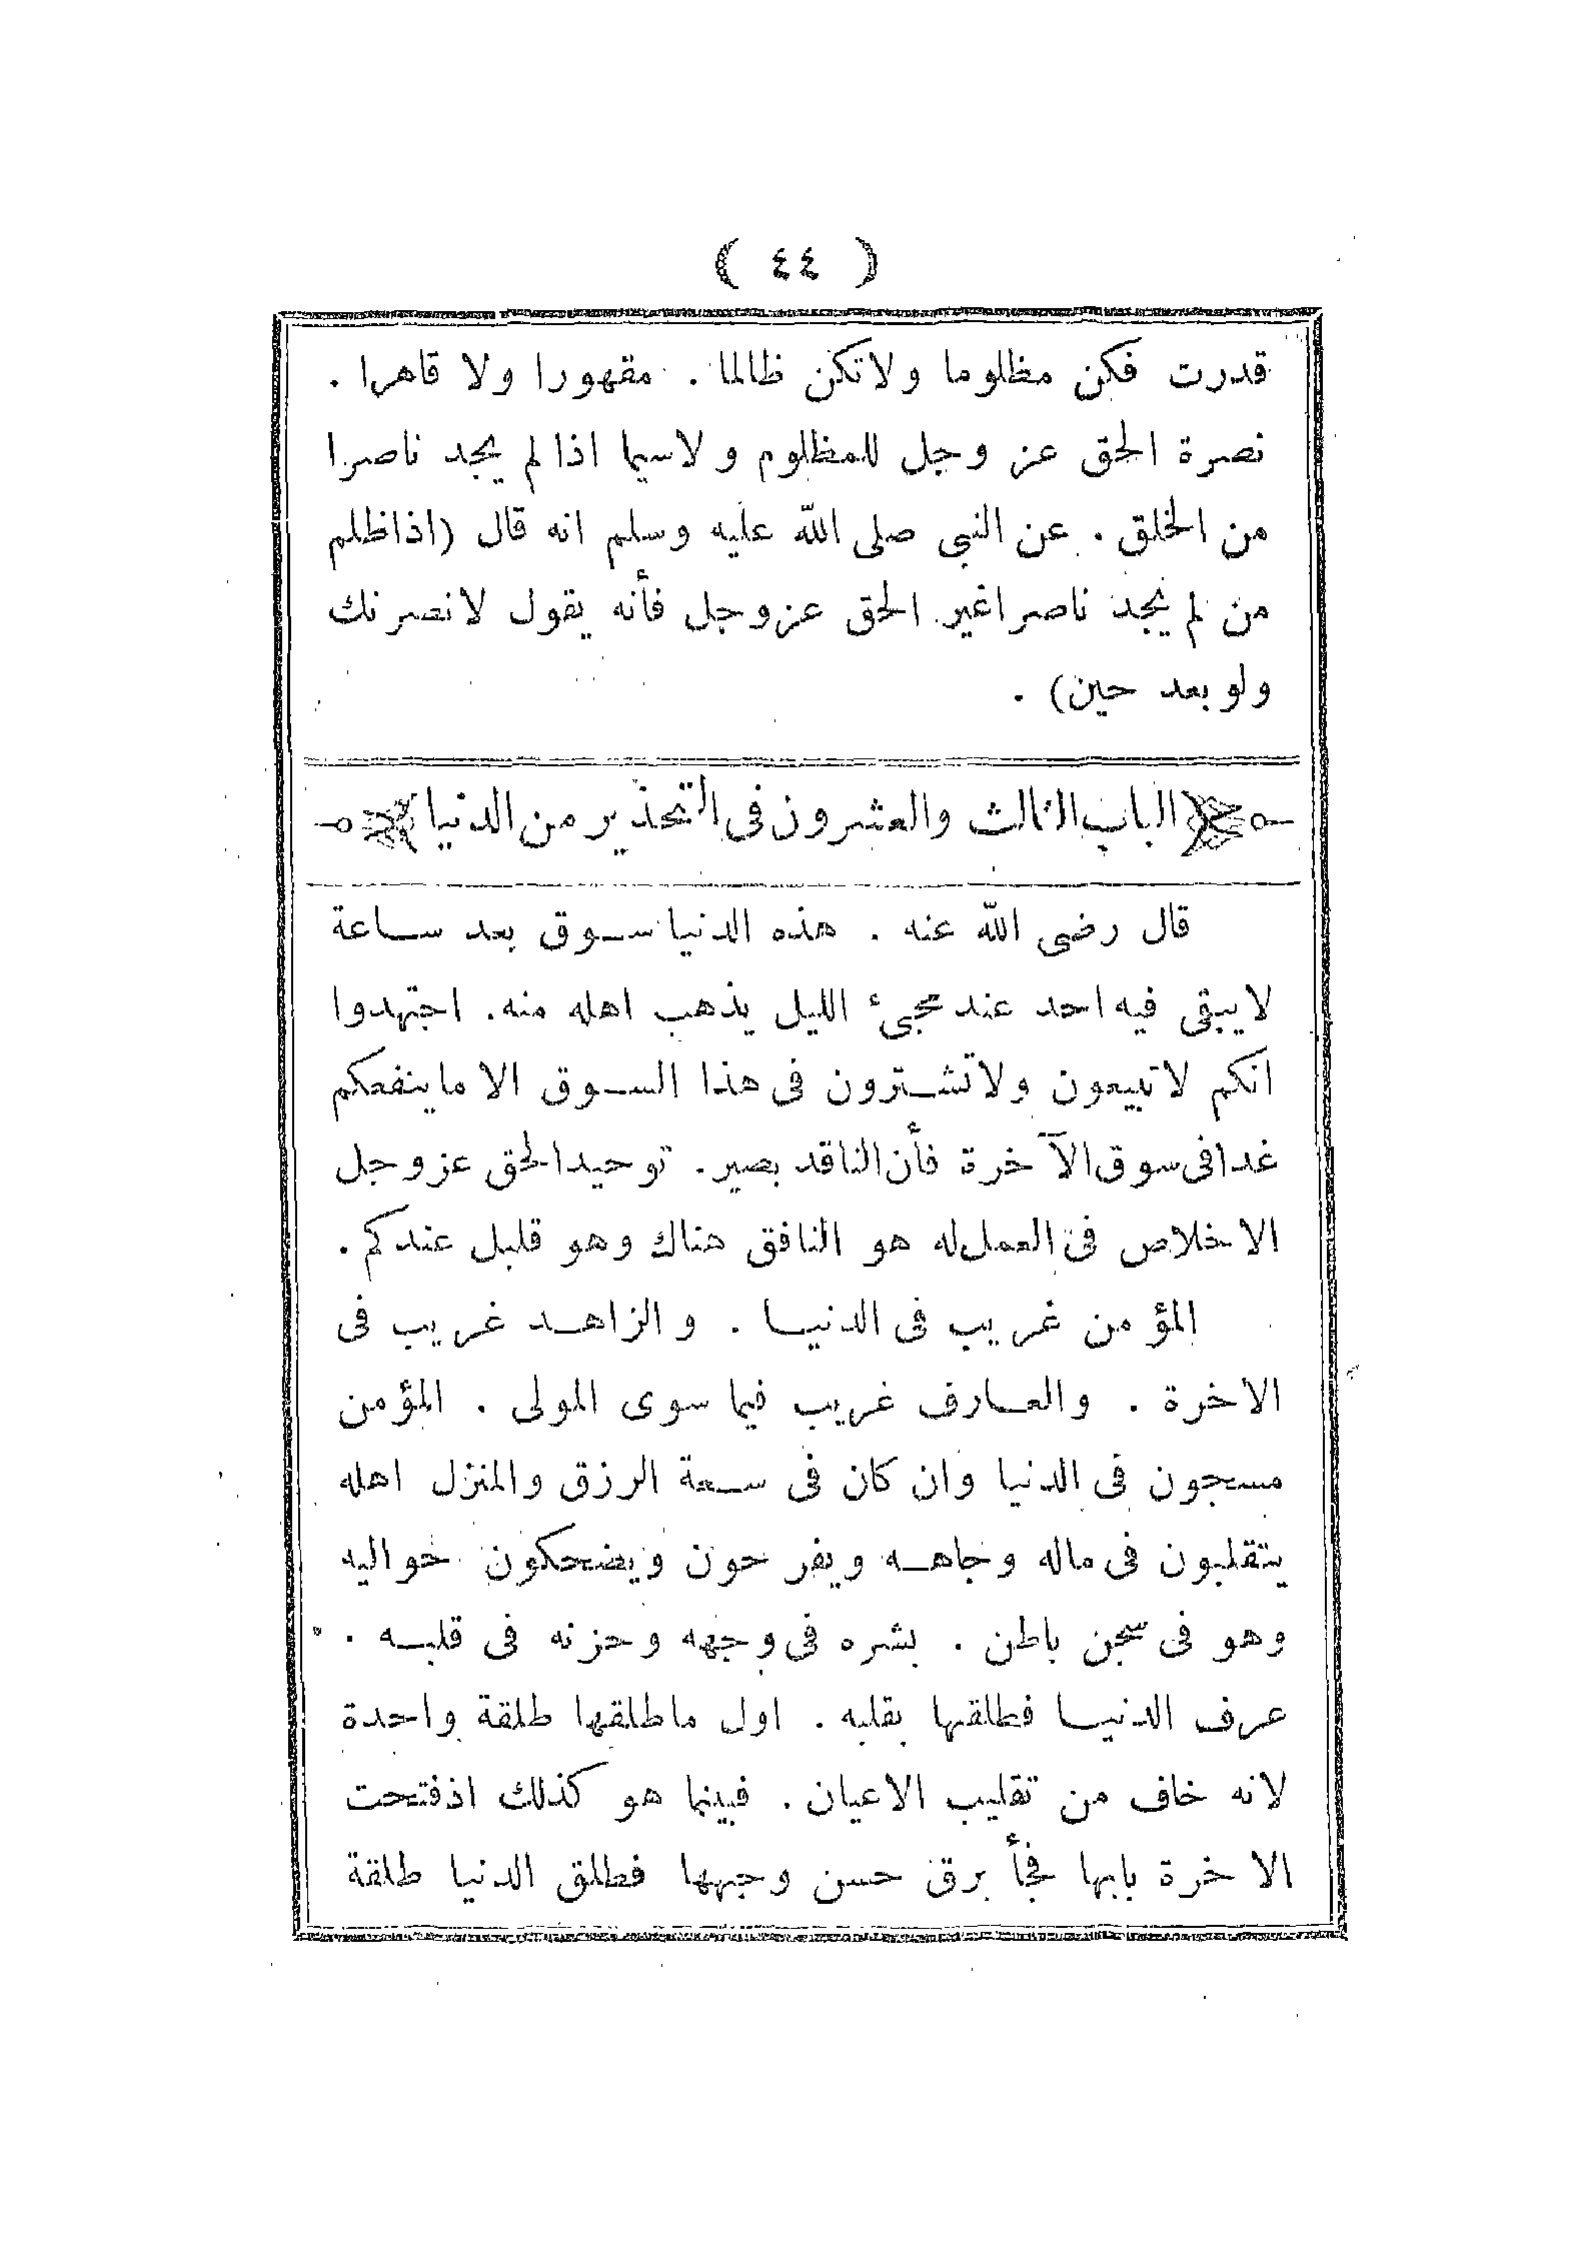 ( ٤٤ )
قدرت فكن مظلوما ولاتكن ظالما . مقهورا ولا قاهرا .
نصرة الحق عز وجل للمظلوم ولاسيما اذا لم يجد ناصرا
من الخلق . عن النبي صلى الله عليه وسلم انه قال (اذاظلم
من لم يجد ناصراغير الحق عزوجل فأنه يقول لانصرنك
ولو بعد حين) .
الباب الثالث والعشرون فى التحذير من الدنيا
قال رضى الله عنه . هذه الدنيا سوق بعد ساعة
لايبقى فيه احد عند مجئ الليل يذهب اهله منه . اجتهدوا
انكم لاتبيعون ولاتشترون فى هذا السوق الا ماينفعكم
غدا فى سوق الآخرة فأن الناقد بصير . توحيد الحق عزوجل
الاخلاص فى العمل له هو النافق هناك وهو قليل عندكم .
المؤمن غريب فى الدنيا . والزاهد غريب فى
الاخرة . والعارف غريب فيما سوى المولى . المؤمن
مسجون فى الدنيا وان كان فى سعة الرزق والمنزل اهله
يتقلبون فى ماله وجاهه ويفرحون ويضحكون حواليه
وهو فى سجن باطن . بشره فى وجهه وحزنه فى قلبه .
عرف الدنيا فطلقها بقلبه . اول ماطلقها طلقة واحدة
لانه خاف من تقليب الاعيان . فبينما هو كذلك اذفتحت
الاخرة بابها فجأ برق حسن وجهها فطلق الدنيا طلقة